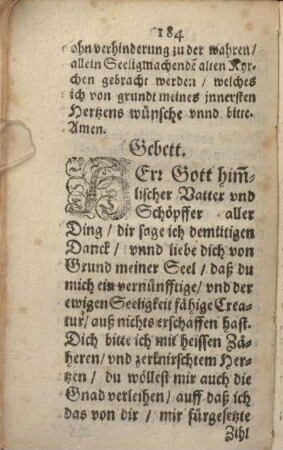 184
ohn verhinderung zu der wahren/
allein Seeligmachendē alten Kyr-
chen gebracht werden / welches
ich von grundt meines jnnersten
Hertzens wünsche vnnd bitte.
Amen.
Gebett.
HErr Gott him̄-
lischer Vatter vnd
Schöpffer aller
Ding / dir sage ich demütigen
Danck / vnnd liebe dich von
Grund meiner Seel / daß du
mich ein vernünfftige / vnd der
ewigen Seeligkeit fähige Crea-
tur / auß nichts erschaffen hast.
Dich bitte ich mit heissen Zä-
heren / vnd zerknirschtem Her-
tzen / du wöllest mir auch die
Gnad verleihen / auff daß ich
das von dir / mir fürgesetzte
Zihl